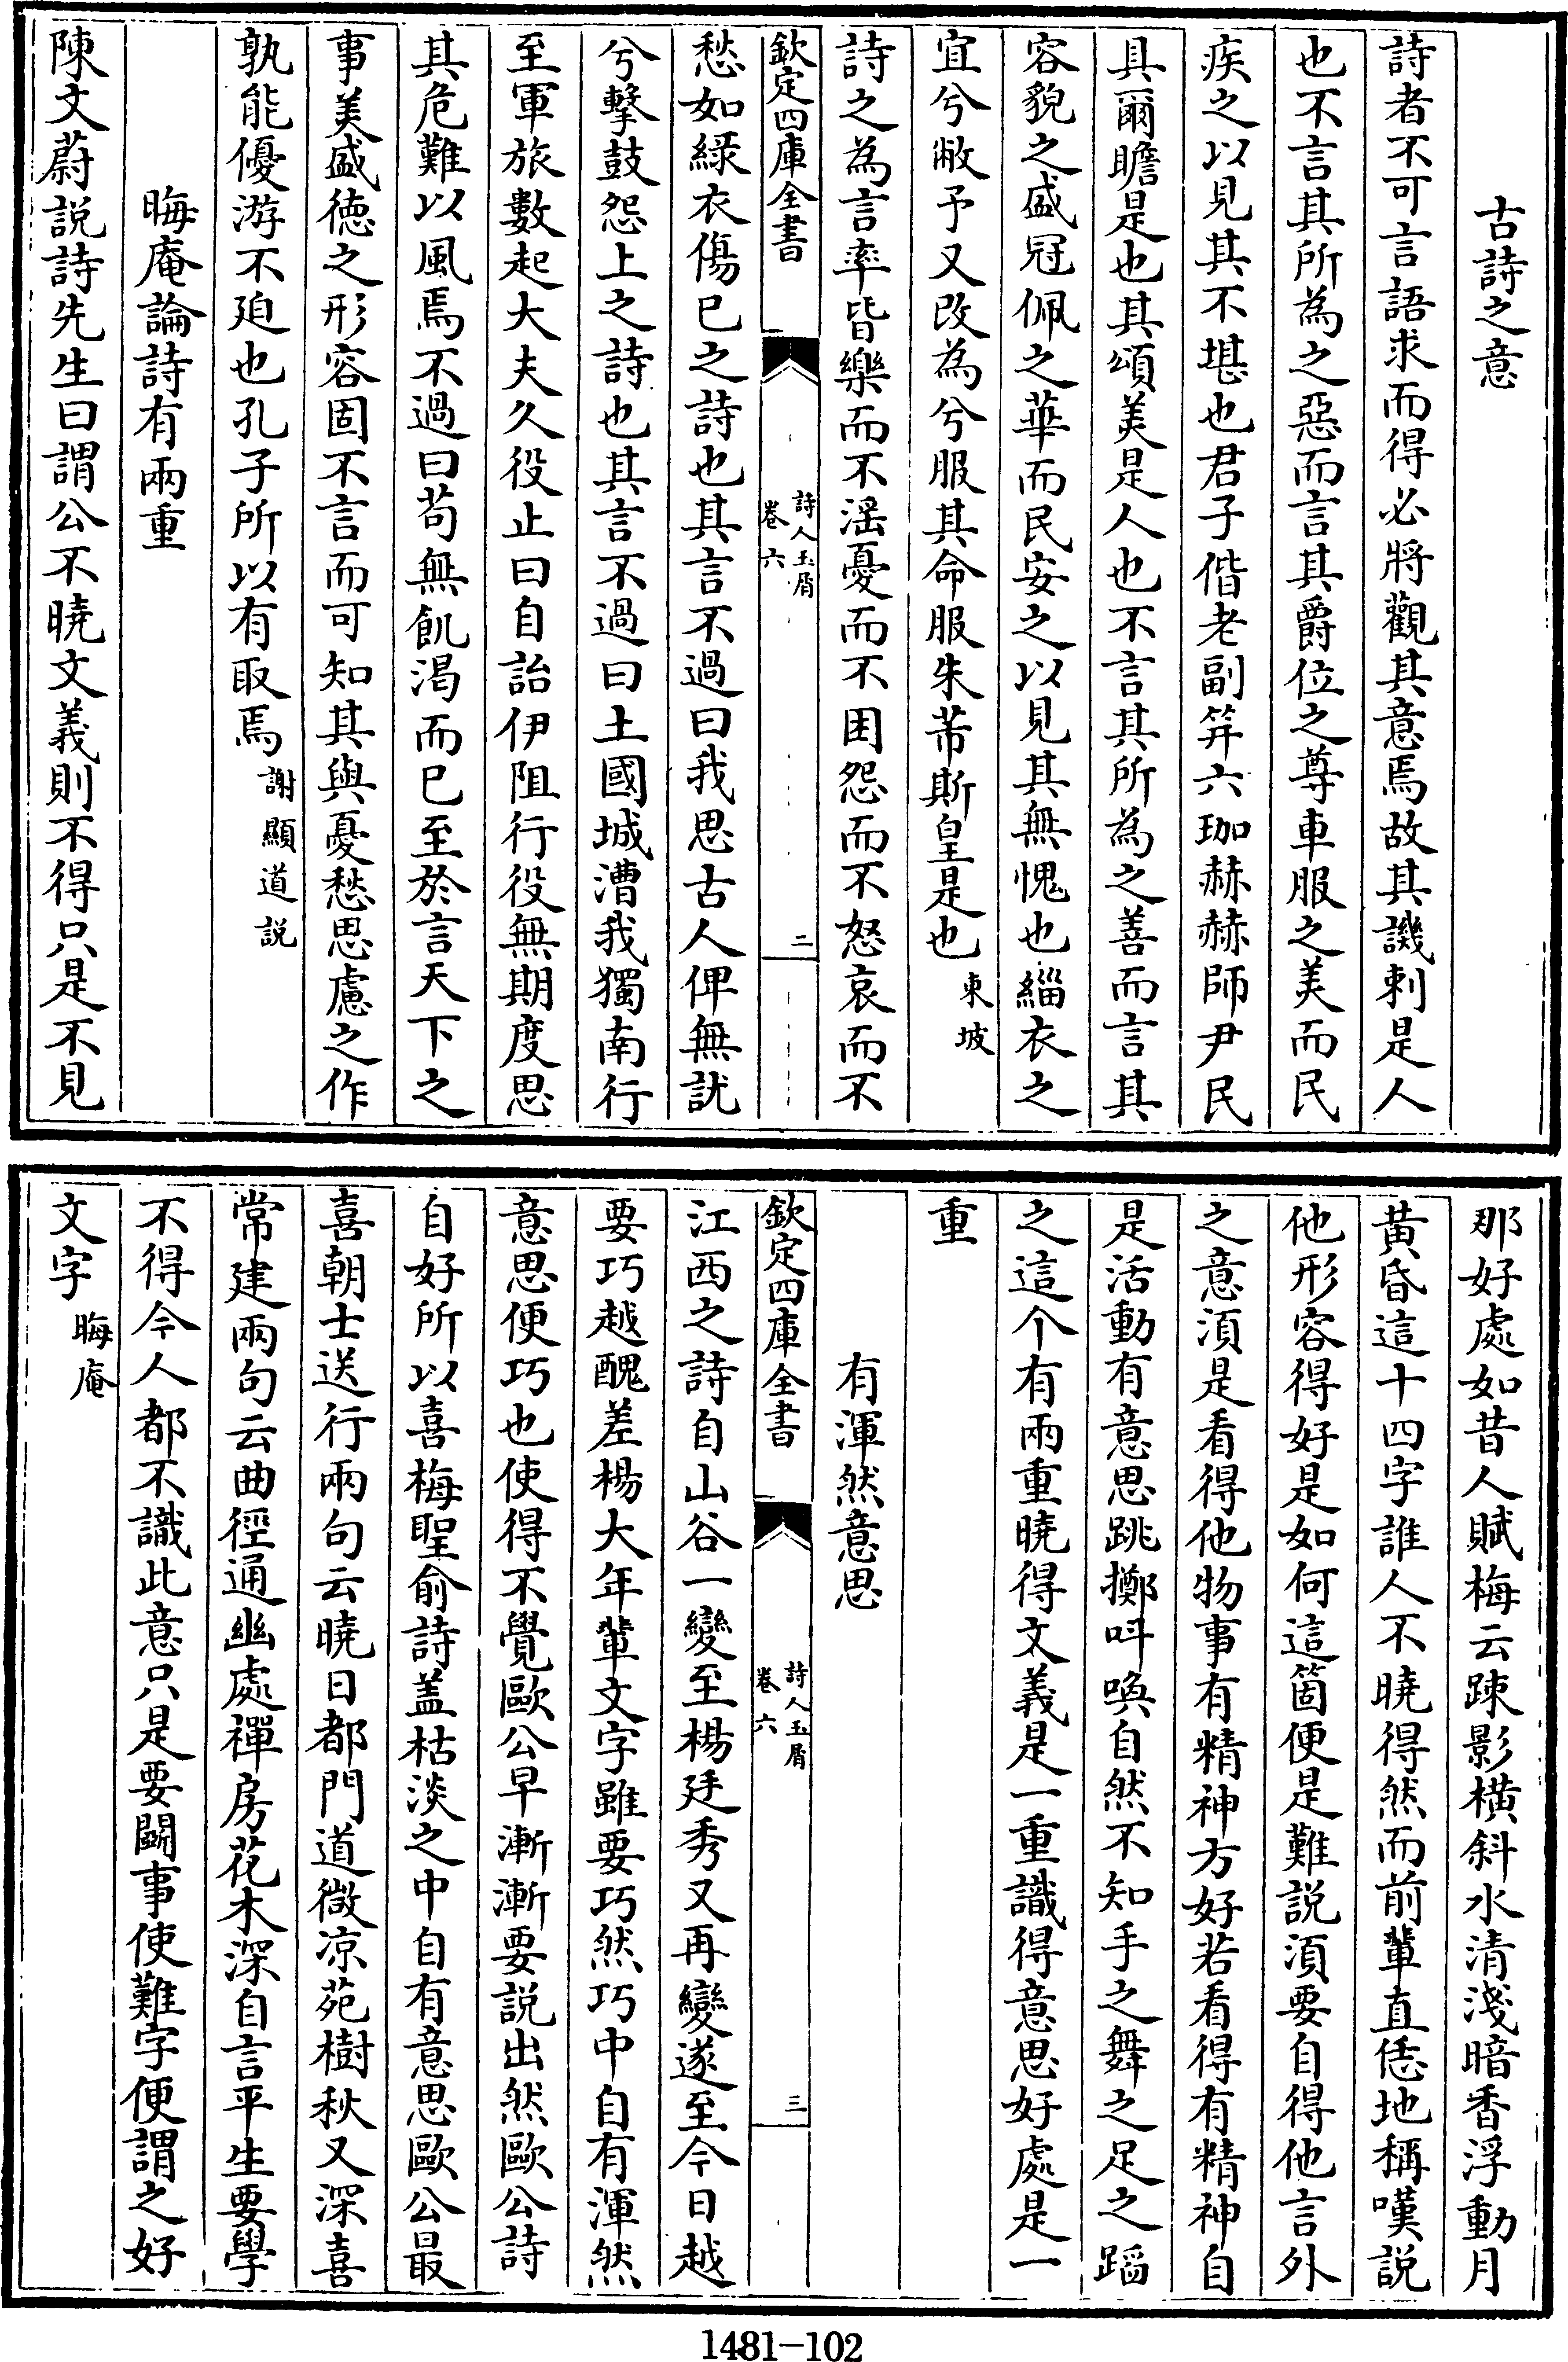 古詩之意
詩者不可言語求而得必將觀其意焉故其譏刺是人
也不言其所為之惡而言其爵位之尊車服之美而民
疾之以見其不堪也君子偕老副笄六珈赫赫師尹民
具爾瞻是也其頌美是人也不言其所為之善而言其
容貌之盛冠佩之華而民安之以見其無愧也緇衣之
宜兮敝予又改為兮服其命服朱芾斯皇是也東坡
詩之為言率皆樂而不滛憂而不困怨而不怒哀而不
欽定四庫全書
詩人玉屑
卷六
二
愁如緑衣傷已之詩也其言不過曰我思古人俾無訧
兮擊鼓怨上之詩也其言不過曰土國城漕我獨南行
至軍旅數起大夫久役止曰自詒伊阻行役無期度思
其危難以風焉不過曰苟無飢渴而已至於言天下之
事美盛德之形容固不言而可知其與憂愁思慮之作
孰能優游不廹也孔子所以有取焉謝顯道説
晦庵論詩有兩重
陳文蔚説詩先生曰謂公不曉文義則不得只是不見
那好處如昔人賦梅云踈影橫斜水清淺暗香浮動月
黃昏這十四字誰人不曉得然而前輩直恁地稱嘆説
他形容得好是如何這箇便是難説湏要自得他言外
之意湏是看得他物事有精神方好若看得有精神自
是活動有意思跳擲呌喚自然不知手之舞之足之蹈
之這个有兩重曉得文義是一重識得意思好處是一
重
有渾然意思
欽定四庫全書
詩人玉屑
卷六
三
江西之詩自山谷一變至楊廷秀又再變遂至今日越
要巧越醜差楊大年輩文字雖要巧然巧中自有渾然
意思便巧也使得不覺歐公早漸漸要説出然歐公詩
自好所以喜梅聖俞詩盖枯淡之中自有意思歐公最
喜朝士送行兩句云曉日都門道微凉苑樹秋又深喜
常建兩句云曲徑通幽處禪房花木深自言平生要學
不得今人都不識此意只是要鬭事使難字便謂之好
文字晦庵
1481-102